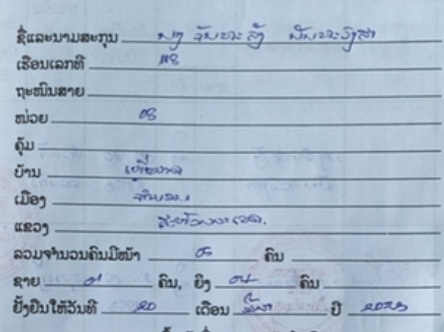 ຊື່ແລະນາມສະກຸນ ນາງ ຈັນທະລັງ ພັນທະວົງສາ
ເຮືອນເລກທີ 118
ຖະໜົນສາຍ
ໜ່ວຍ 08
ຄຸ້ມ
ບ້ານ
ເມືອງ
ແຂວງ ສະຫວັນນະເຂດ.
ລວມຈຳນວນຄົນມີໜ້າ 05 ຄົນ
ຊາຍ 01 ຄົນ, ຍິງ 04 ຄົນ
ຢັ້ງຢືນໃຫ້ວັນທີ 20 ເດືອນ ມີນາ ປີ 2023